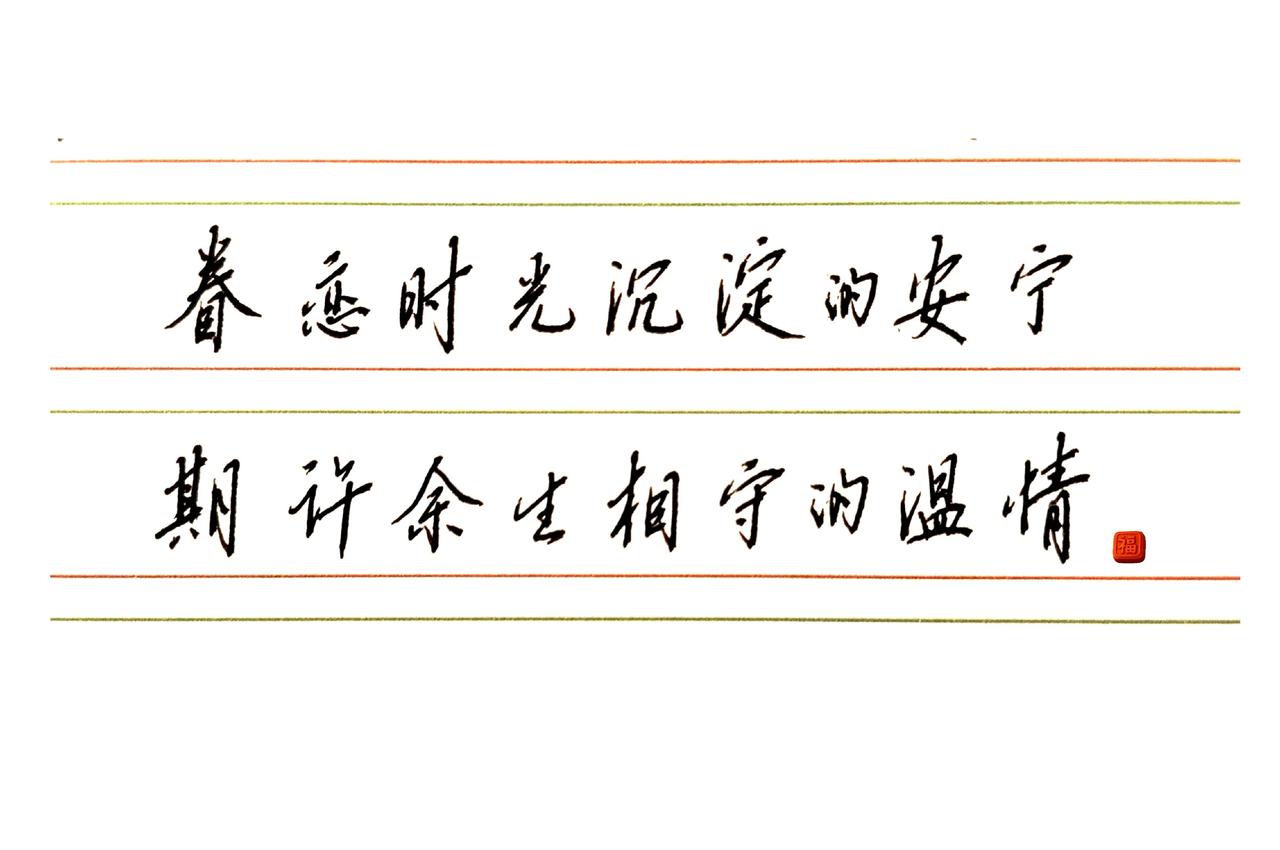 眷恋时光沉淀的安宁
期许余生相守的温情
福